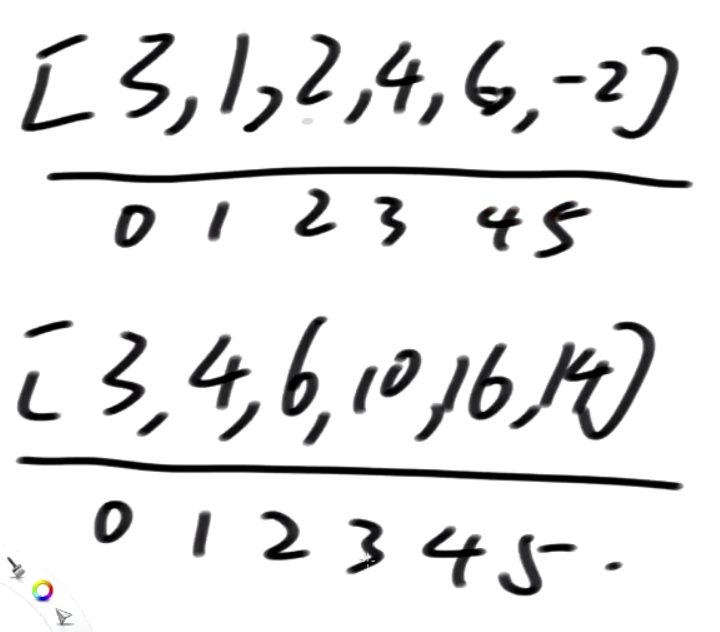 [3,1,2,4,6,-2]
0 1 2 3 4 5
[3,4,6,10,16,14]
0 1 2 3 4 5.